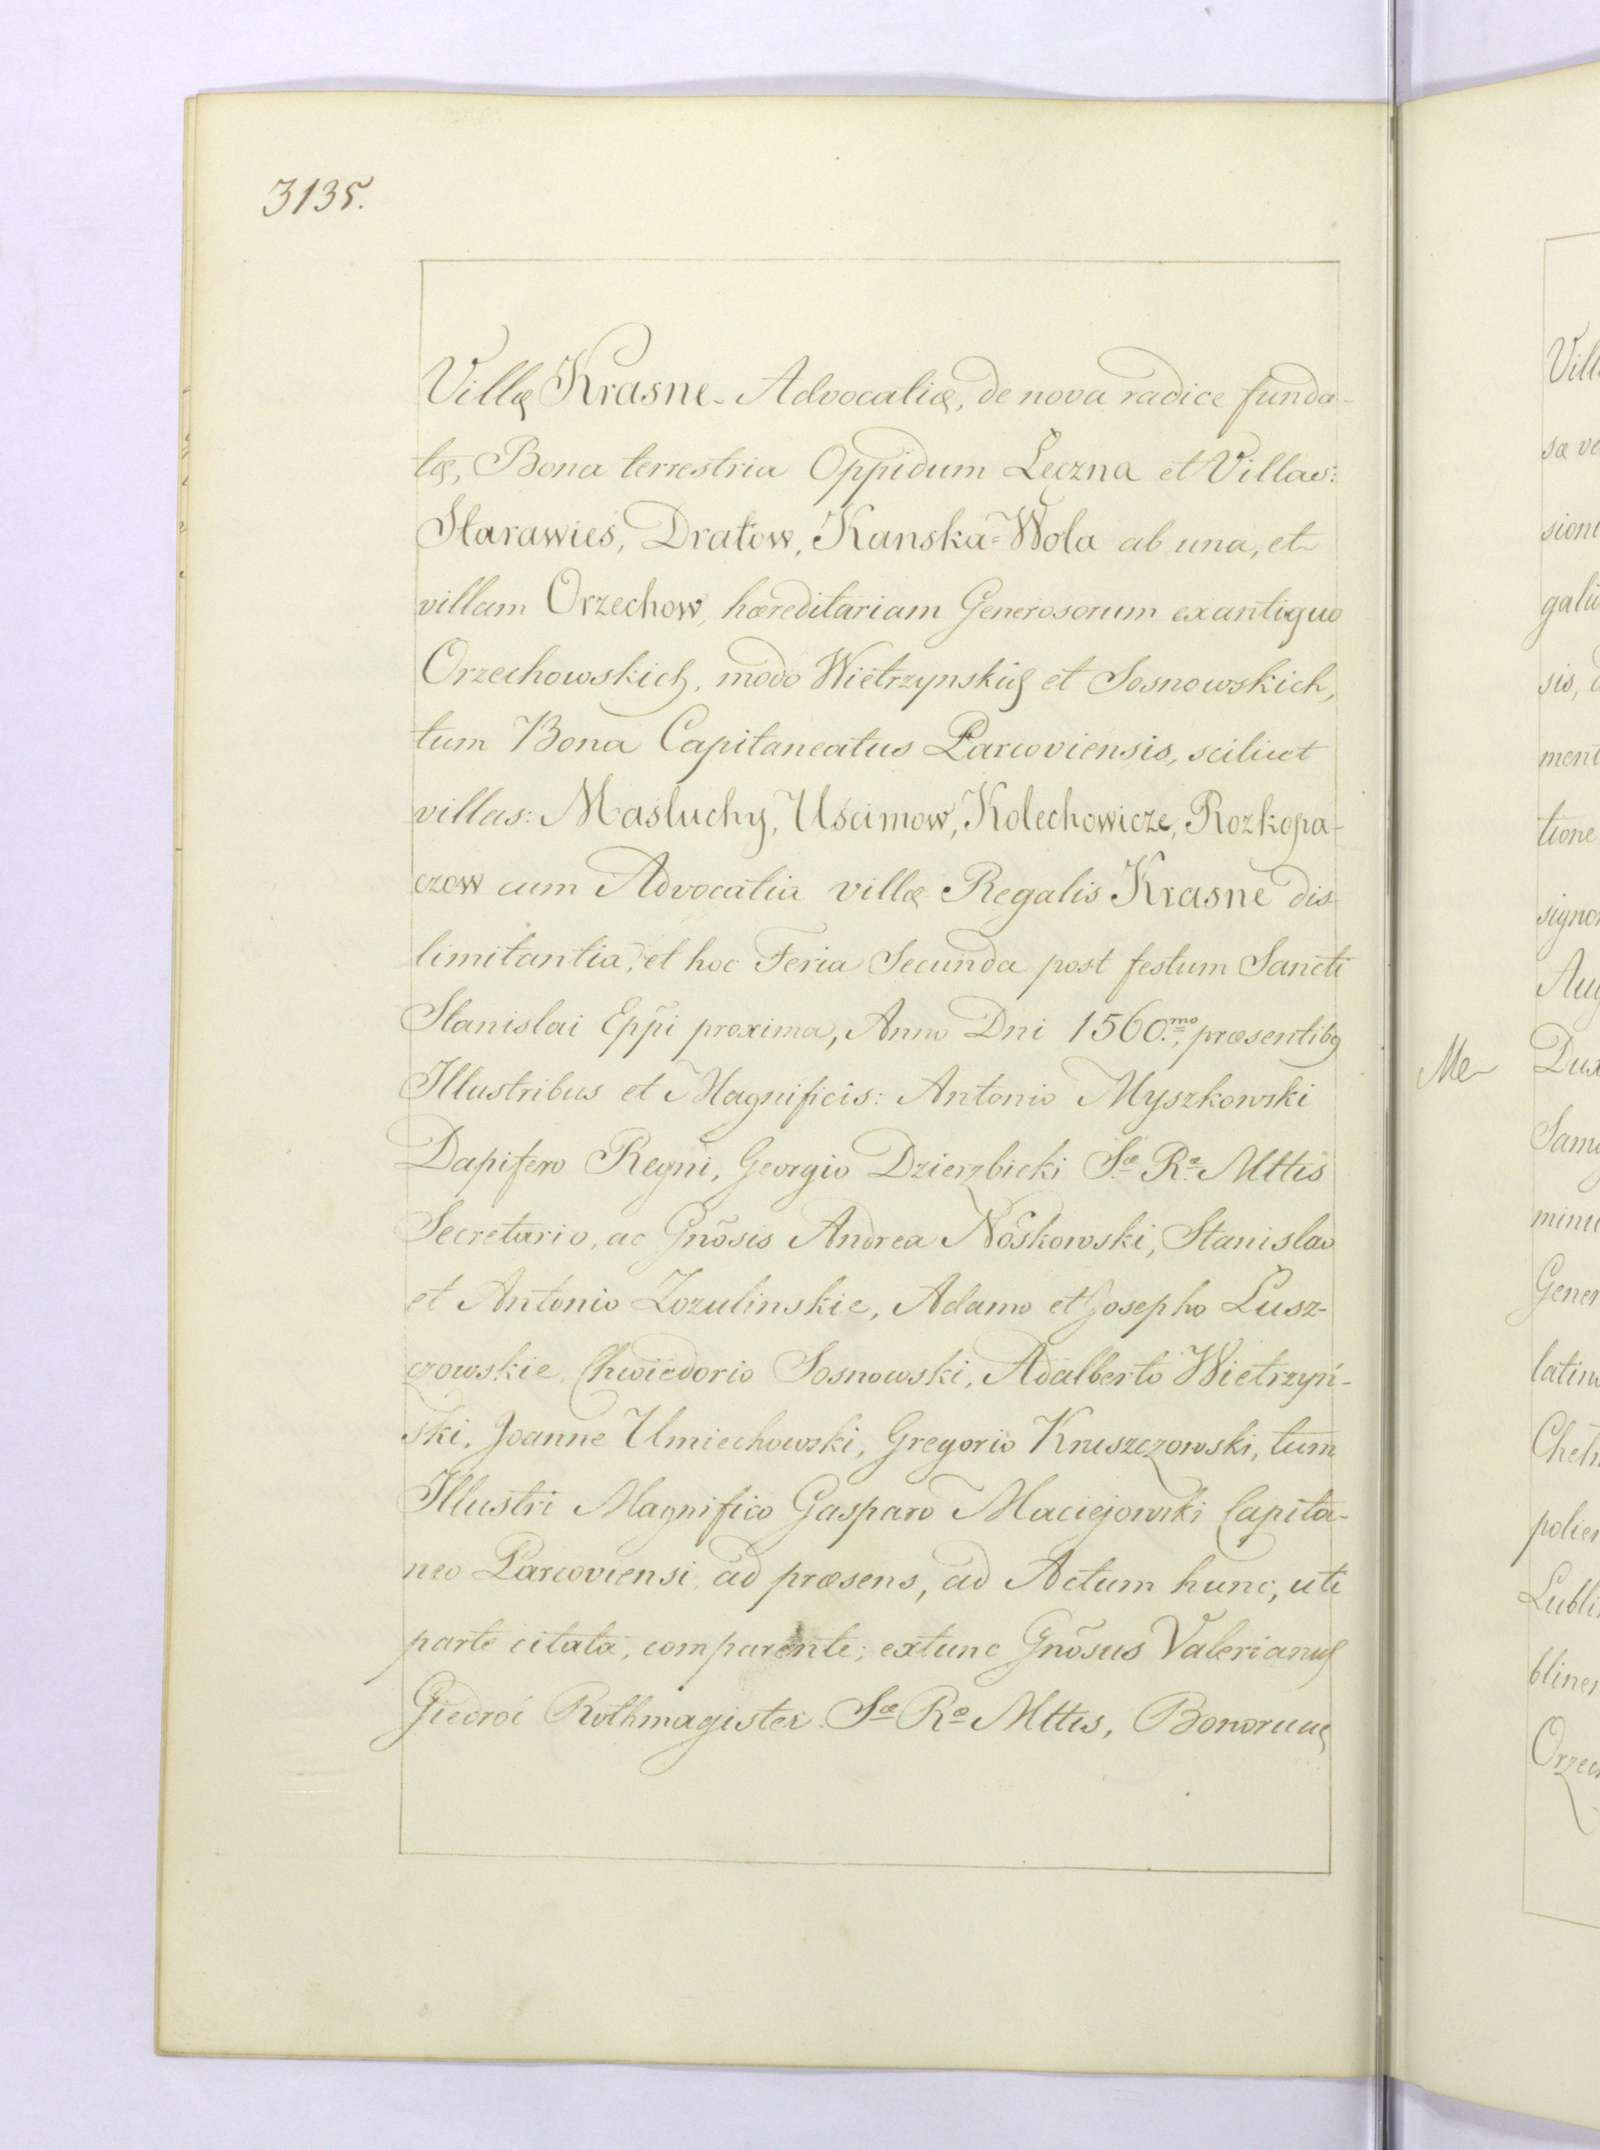 3135.
Villę Krasne - Advocatiæ, de nova radice funda-
tę, Bona terrestria Oppidum Lęczna et Villas:
Starawieś, Dratow, Kanska=Wola ab una, et
villam Orzechow, hæreditariam Generosorum ex antiquo
Orzechowskich, modo Wietrzynskich et Sosnowskich,
tum Bona Capitaneatus Parcoviensis, scilicet
villas: Masluchy, Uścimow, Kolechowicze, Rozkopa-
czow cum Advocatia villæ Regalis Krasne dis-
limitantia, et hoc Feria Secunda post festum Sancti
Stanislai Eppi proxima, Anno Dni 1560.mo, præsentibꝫ
Illustribus et Magnificis: Antonio Myszkowski
Dapifero Regni, Georgio Dzierzbicki Sæ Ræ Mttis
Secretario, ac Gnõsis Andrea Noskowski, Stanislao
et Antonio Zozulinskie, Adamo et Josepho Lusz-
czowskie, Chwiedorio Sosnowski, Adalberto Wietrzyń-
ski, Joanne Umiechowski, Gregorio Kruszczowski, tum
Illustri Magnifico Gasparo Maciejowski Capita-
neo Parcoviensi, ad præsens, ad Actum hunc, uti
parte citata, comparente; extunc Gnõsus Valerianus
Giedroć Rothmagister Sæ Ræ Mttis, Bonorum
Vill
sæ ve
sioni
sis,
ment
tione
signo
Aug
Me Dux
Sam
minu
Gener
latin
Cheł
polien
Lubli
bliner
Orzec